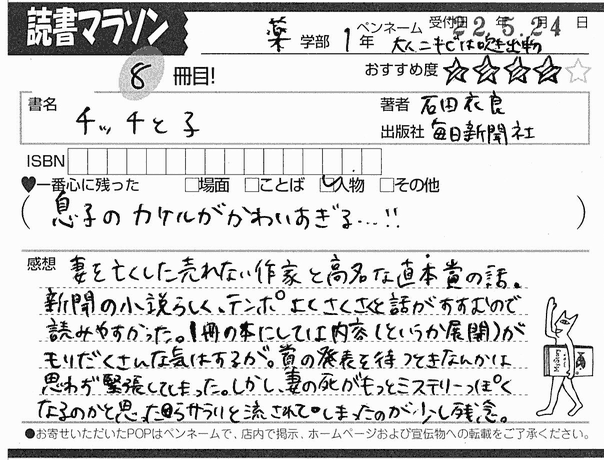 読書マラソン
薬 学部 1年 ペンネーム 大人ニキビは吹き出物 受付日 22年5月24日
8 冊目! おすすめ度 ★★★★☆
書名 チッチと子
著者 石田衣良
出版社 毎日新聞社
ISBN
♥一番心に残った □場面 □ことば ☑人物 □その他
(息子のカケルがかわいすぎる…!!)
感想 妻を亡くした売れない作家と高名な直本賞の話。
新聞の小説らしく、テンポよくさくさくと話がすすむので
読みやすかった。1冊の本にしては内容(というか展開)が
もりだくさんな気はするが。賞の発表を待つときなんかは
思わず緊張してしまった。しかし、妻の死がもっとミステリーっぽく
なるのかと思ったらサラリと流されてしまったのが少し残念。
●お寄せいただいたPOPはペンネームで、店内で掲示、ホームページおよび宣伝物への転載をご了承ください。